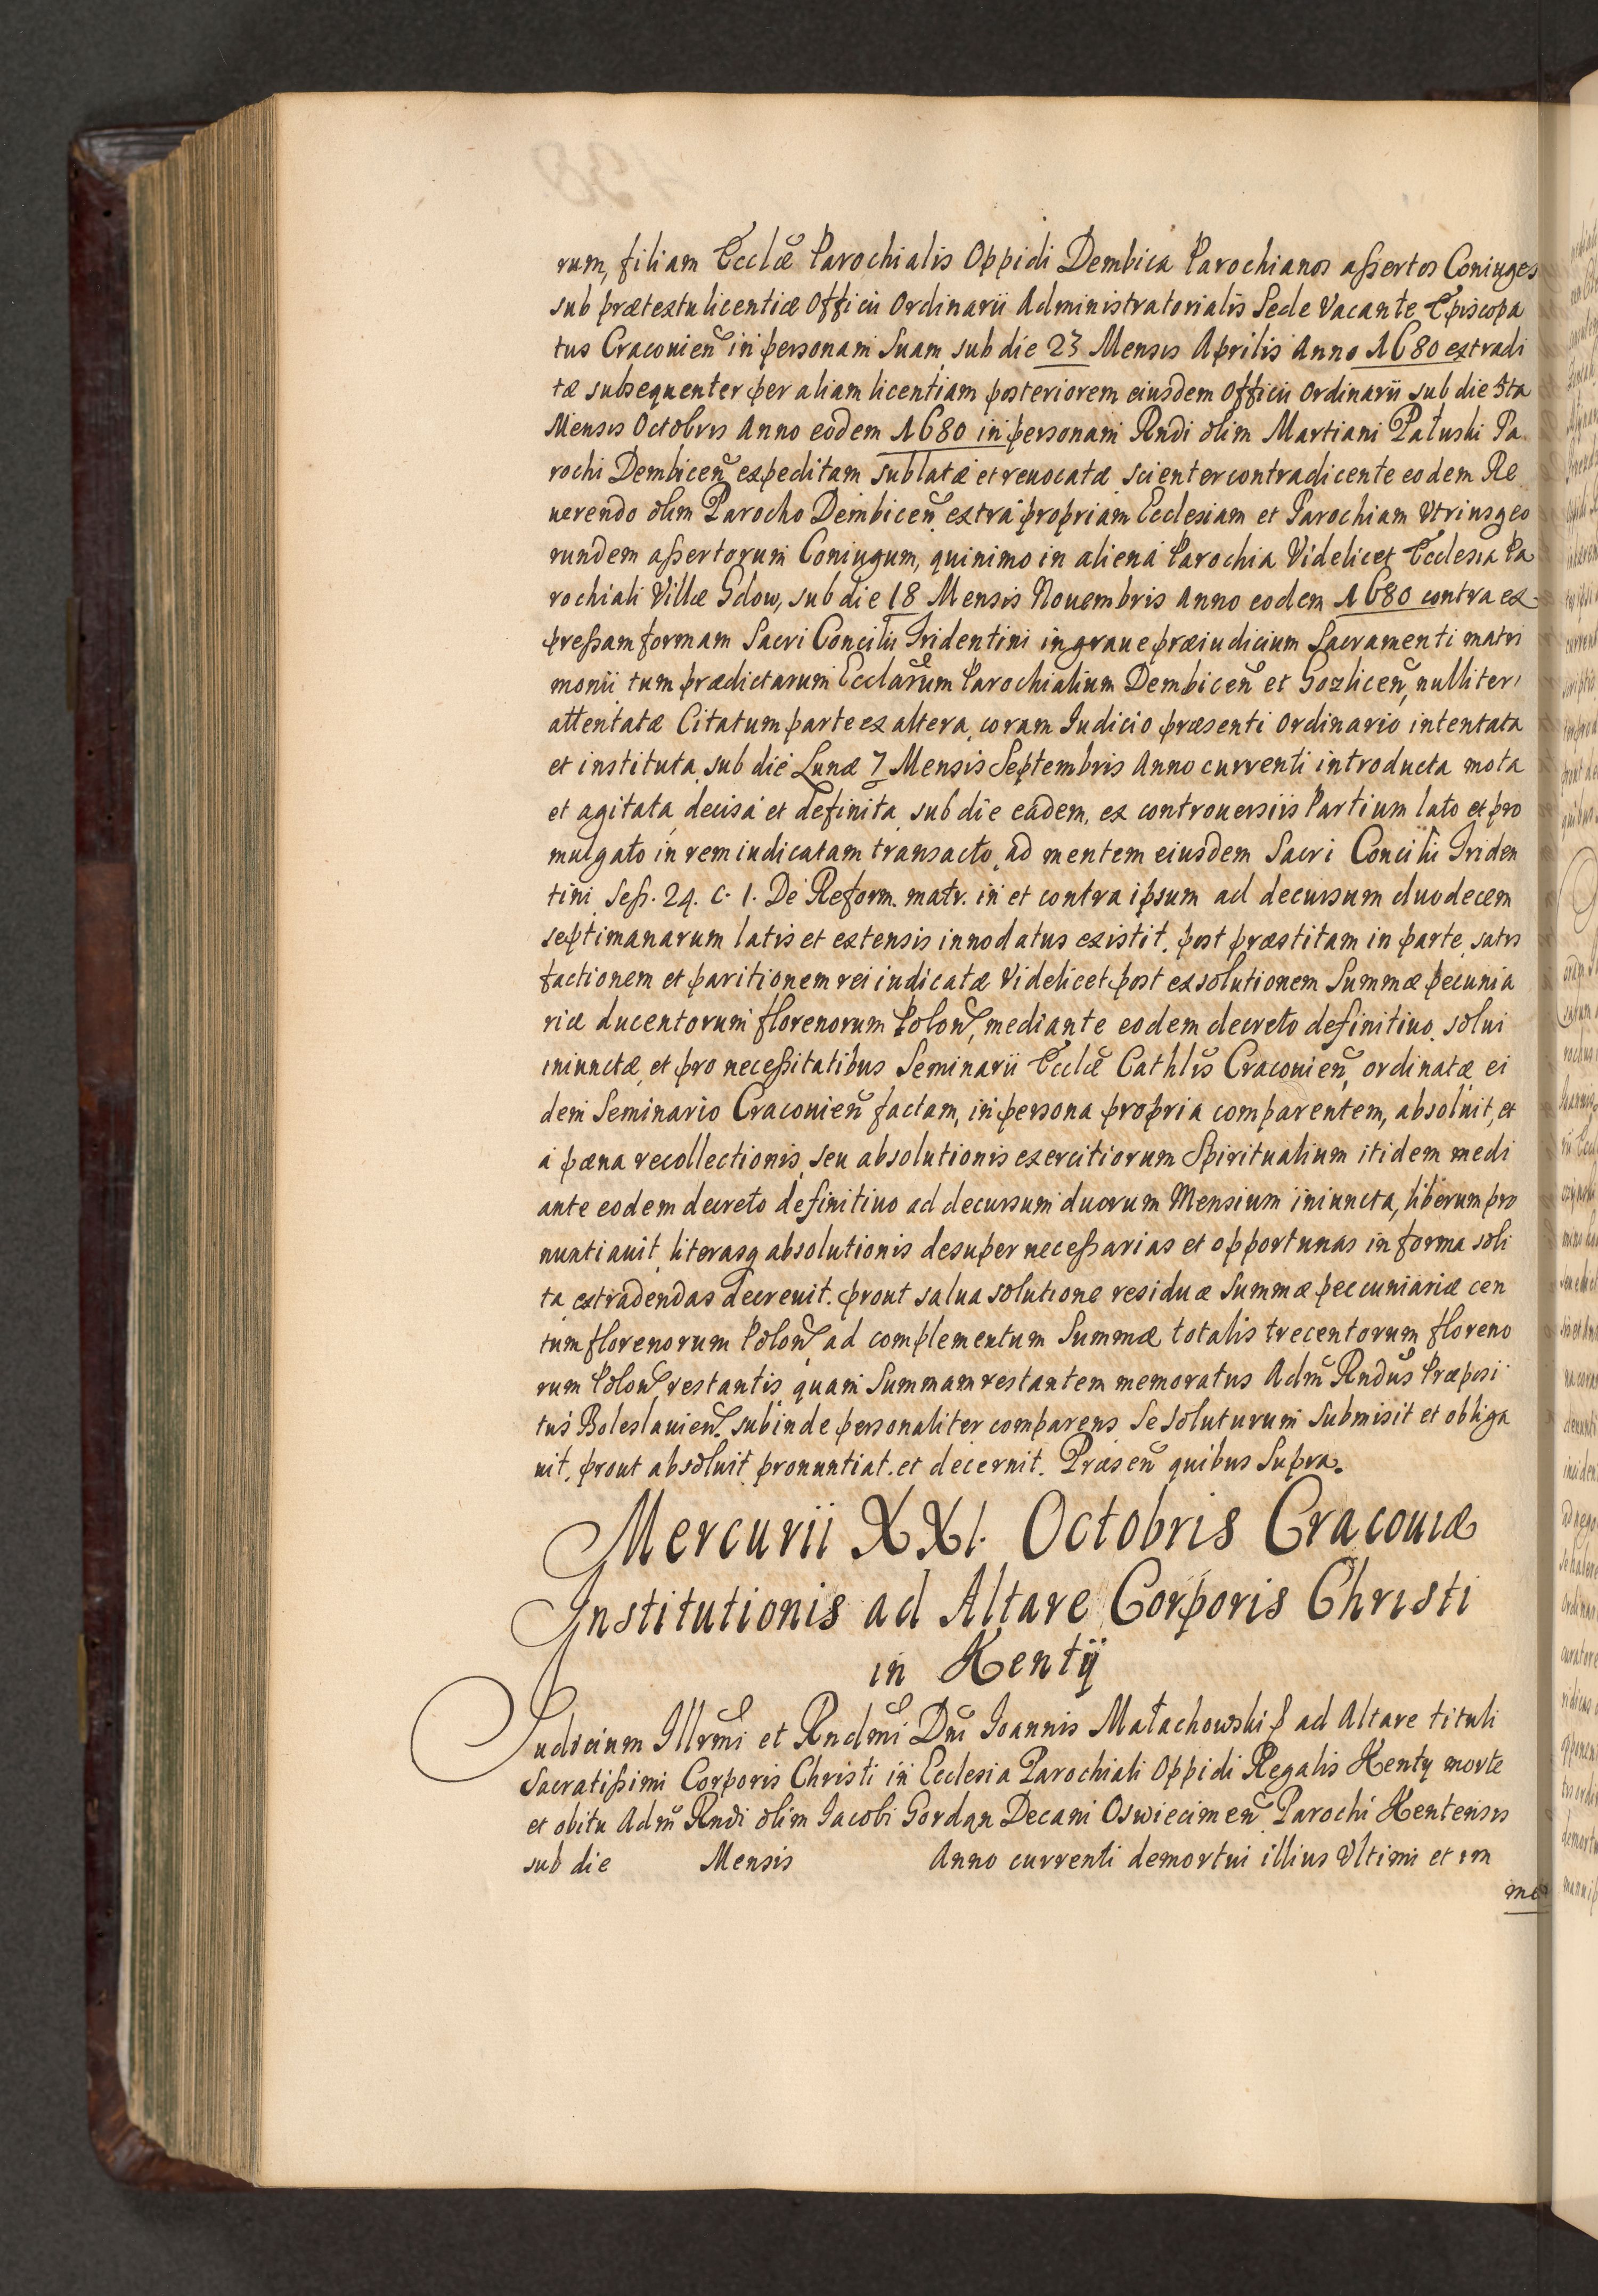 rum, filiam Eccłæ Parochialis Oppidi Dembica Parochianos assertos Coniuges
sub prætextu licentiæ Officii Ordinarii Administratorialis Sede Vacante Episcopa
tus Cracouień in personam Suam sub die 23 Mensis Aprilis Anno 1680 extradi
tæ subsequenter per aliam licentiam posteriorem eiusdem Officii Ordinarii sub die 5ta
Mensis Octobris Anno eodem 1680 in personam Rndi olim Martiani Pałuski Pa
rochi Dembiceń expeditam sublatæ et reuocatæ scienter contradicente eodem Re
uerendo olim Parocho Dembiceń extra propriam Ecclesiam et Parochiam Vtriusq eo
rundem assertorum Coniugum, quinimo in aliena Parochia Videlicet Ecclesia Pa
rochiali Villæ Gdow, sub die 18 Mensis Nouembris Anno eodem 1680 contra ex
pressam formam Sacri Concilii Tridentini in graue præiudicium Sacramenti matri
monii tum prædictarum Ecclarum Parochialium Dembiceń et Gozliceń, nulliter
attentatæ Citatum parte ex altera, coram Iudicio præsenti Ordinario intentata
et instituta, sub die Lunæ 7 Mensis Septembris Anno currenti introducta mota
et agitata, decisa et definita, sub die eadem, ex controuersiis Partium lato et pro
mulgato in rem iudicatam transacto, ad mentem eiusdem Sacri Concilii Triden
tini Sess. 24. c. 1. De Reform. matr. in et contra ipsum ad decursum duodecem
septimanarum latis et extensis innodatus existit, post præstitam in parte satis
factionem et paritionem rei iudicatæ Videlicet post exsolutionem Summæ pecunia
riæ ducentorum florenorum Polon, mediante eodem decreto definitiuo, solui
iniunctæ, et pro necessitatibus Seminarii Eccłæ Cathlis Cracouień, ordinatæ ei
dem Seminario Cracouień factam, in persona propria comparentem, absoluit, et
a pæna recollectionis, seu absolutionis exercitiorum Spiritualium itidem medi
ante eodem decreto definitiuo ad decursum duorum Mensium iniuncta, liberum pro
nuntiauit, literasq absolutionis desuper necessarias et opportunas in forma soli
ta extradendas decreuit. prout salua solutione residuæ Summæ peccuniariæ cen
tum florenorum Polon, ad complementum Summæ totalis trecentorum floreno
rum Polon restantis, quam Summam restantem memoratus Adm Rndus Præposi
tus Boleslauien. subinde personaliter comparens Se soluturum submisit et obliga
uit, prout absoluit pronuntiat. et decernit. Præseń quibus Supra.
Mercurii XXI. Octobris Cracouiæ
Institutionis ad Altare Corporis Christi
in Kentÿ
Iudicium Illrmi et Rndmi Dni Ioannis Małachowski ad Altare tituli
Sacratissimi Corporis Christi in Ecclesia Parochiali Oppidi Regalis Kenty morte
et obitu Adm Rndi olim Iacobi Gordan Decani Oswiecimeń Parochi Kentensis
sub die Mensis Anno currenti demortui illius Vltimi et im
me